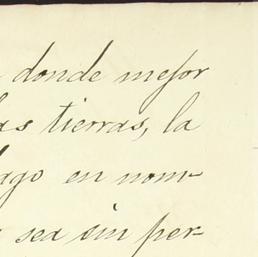 donde mejor
as tierras, la
ago en nom-
sea sin per-